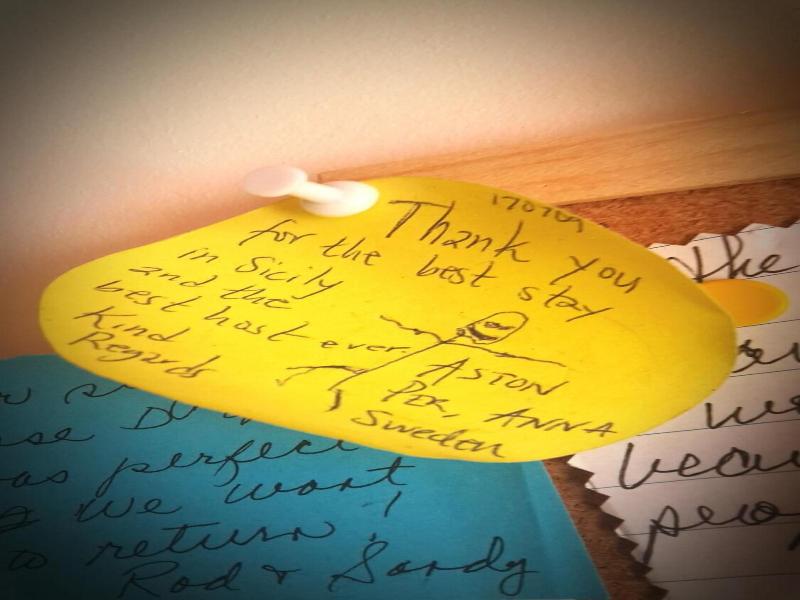 170709
Thank you
for the best stay
in Sicily
and the
best host ever.
Kind
Regards
ASTON
Per, ANNA
Sweden
as perfect
we want
to return!
Rod & Sandy
the